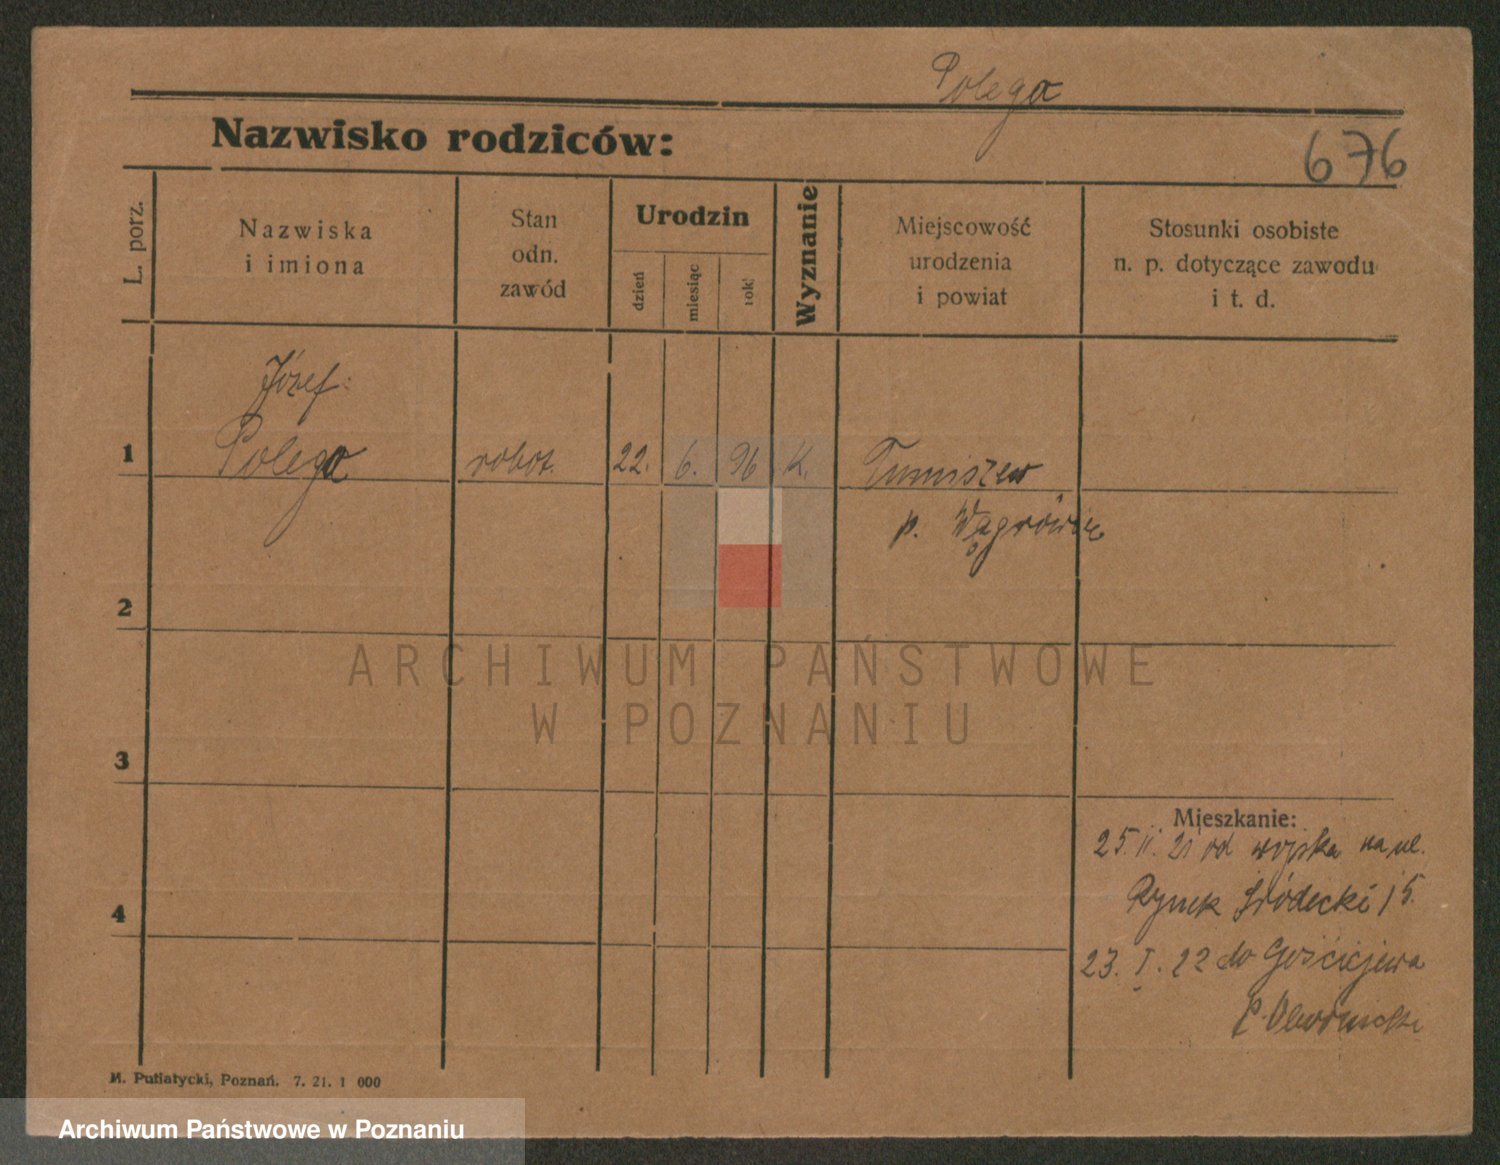 Polega
Nazwisko rodziców:
676
L. porz.
Nazwiska
i imiona
Stan
odn.
zawód
Urodzin
dzień
miesiąc
rok
Wyznanie
Miejscowość
urodzenia
i powiat
Stosunki osobiste
n. p. dotyczące zawodu
i t. d.
Józef
1 Polega robot. 22. 6. 96 K. Tumiszew
p. Wągrówiec
2
3
4
Mieszkanie:
25. II. 21 od wojska na ul.
Rynek Śródecki 15.
23. I. 22 do Gościejewa
p.
M. Putiatycki, Poznań. 7. 21. 1 000
ARCHIWUM PAŃSTWOWE
W POZNANIU
Archiwum Państwowe w Poznaniu